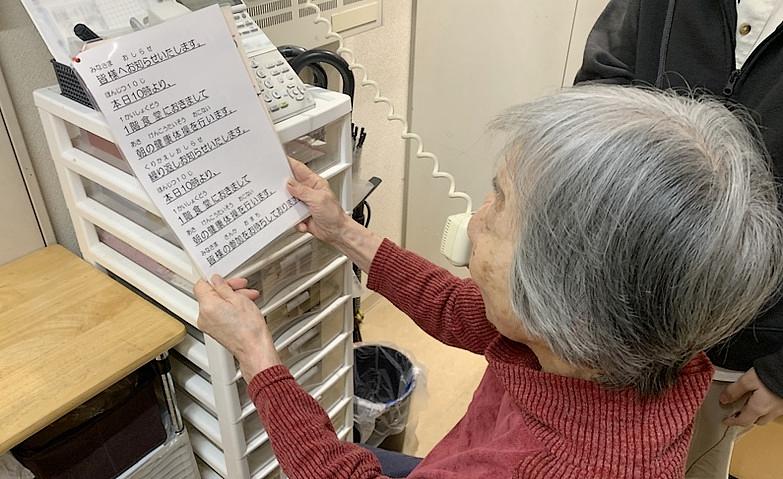 みなさま おしらせ
皆様へお知らせいたします。
ほんじつ10じ
本日10時より、
1かいしょくどう
1階食堂におきまして
あさ けんこうたいそう おこない
朝の健康体操を行います。
くりかえしおしらせ
繰り返しお知らせいたします。
ほんじつ10じ
本日10時より、
1かいしょくどう
1階食堂におきまして
あさ けんこうたいそう おこない
朝の健康体操を行います。
みなさま さんか おまち
皆様の参加をお待ちしております